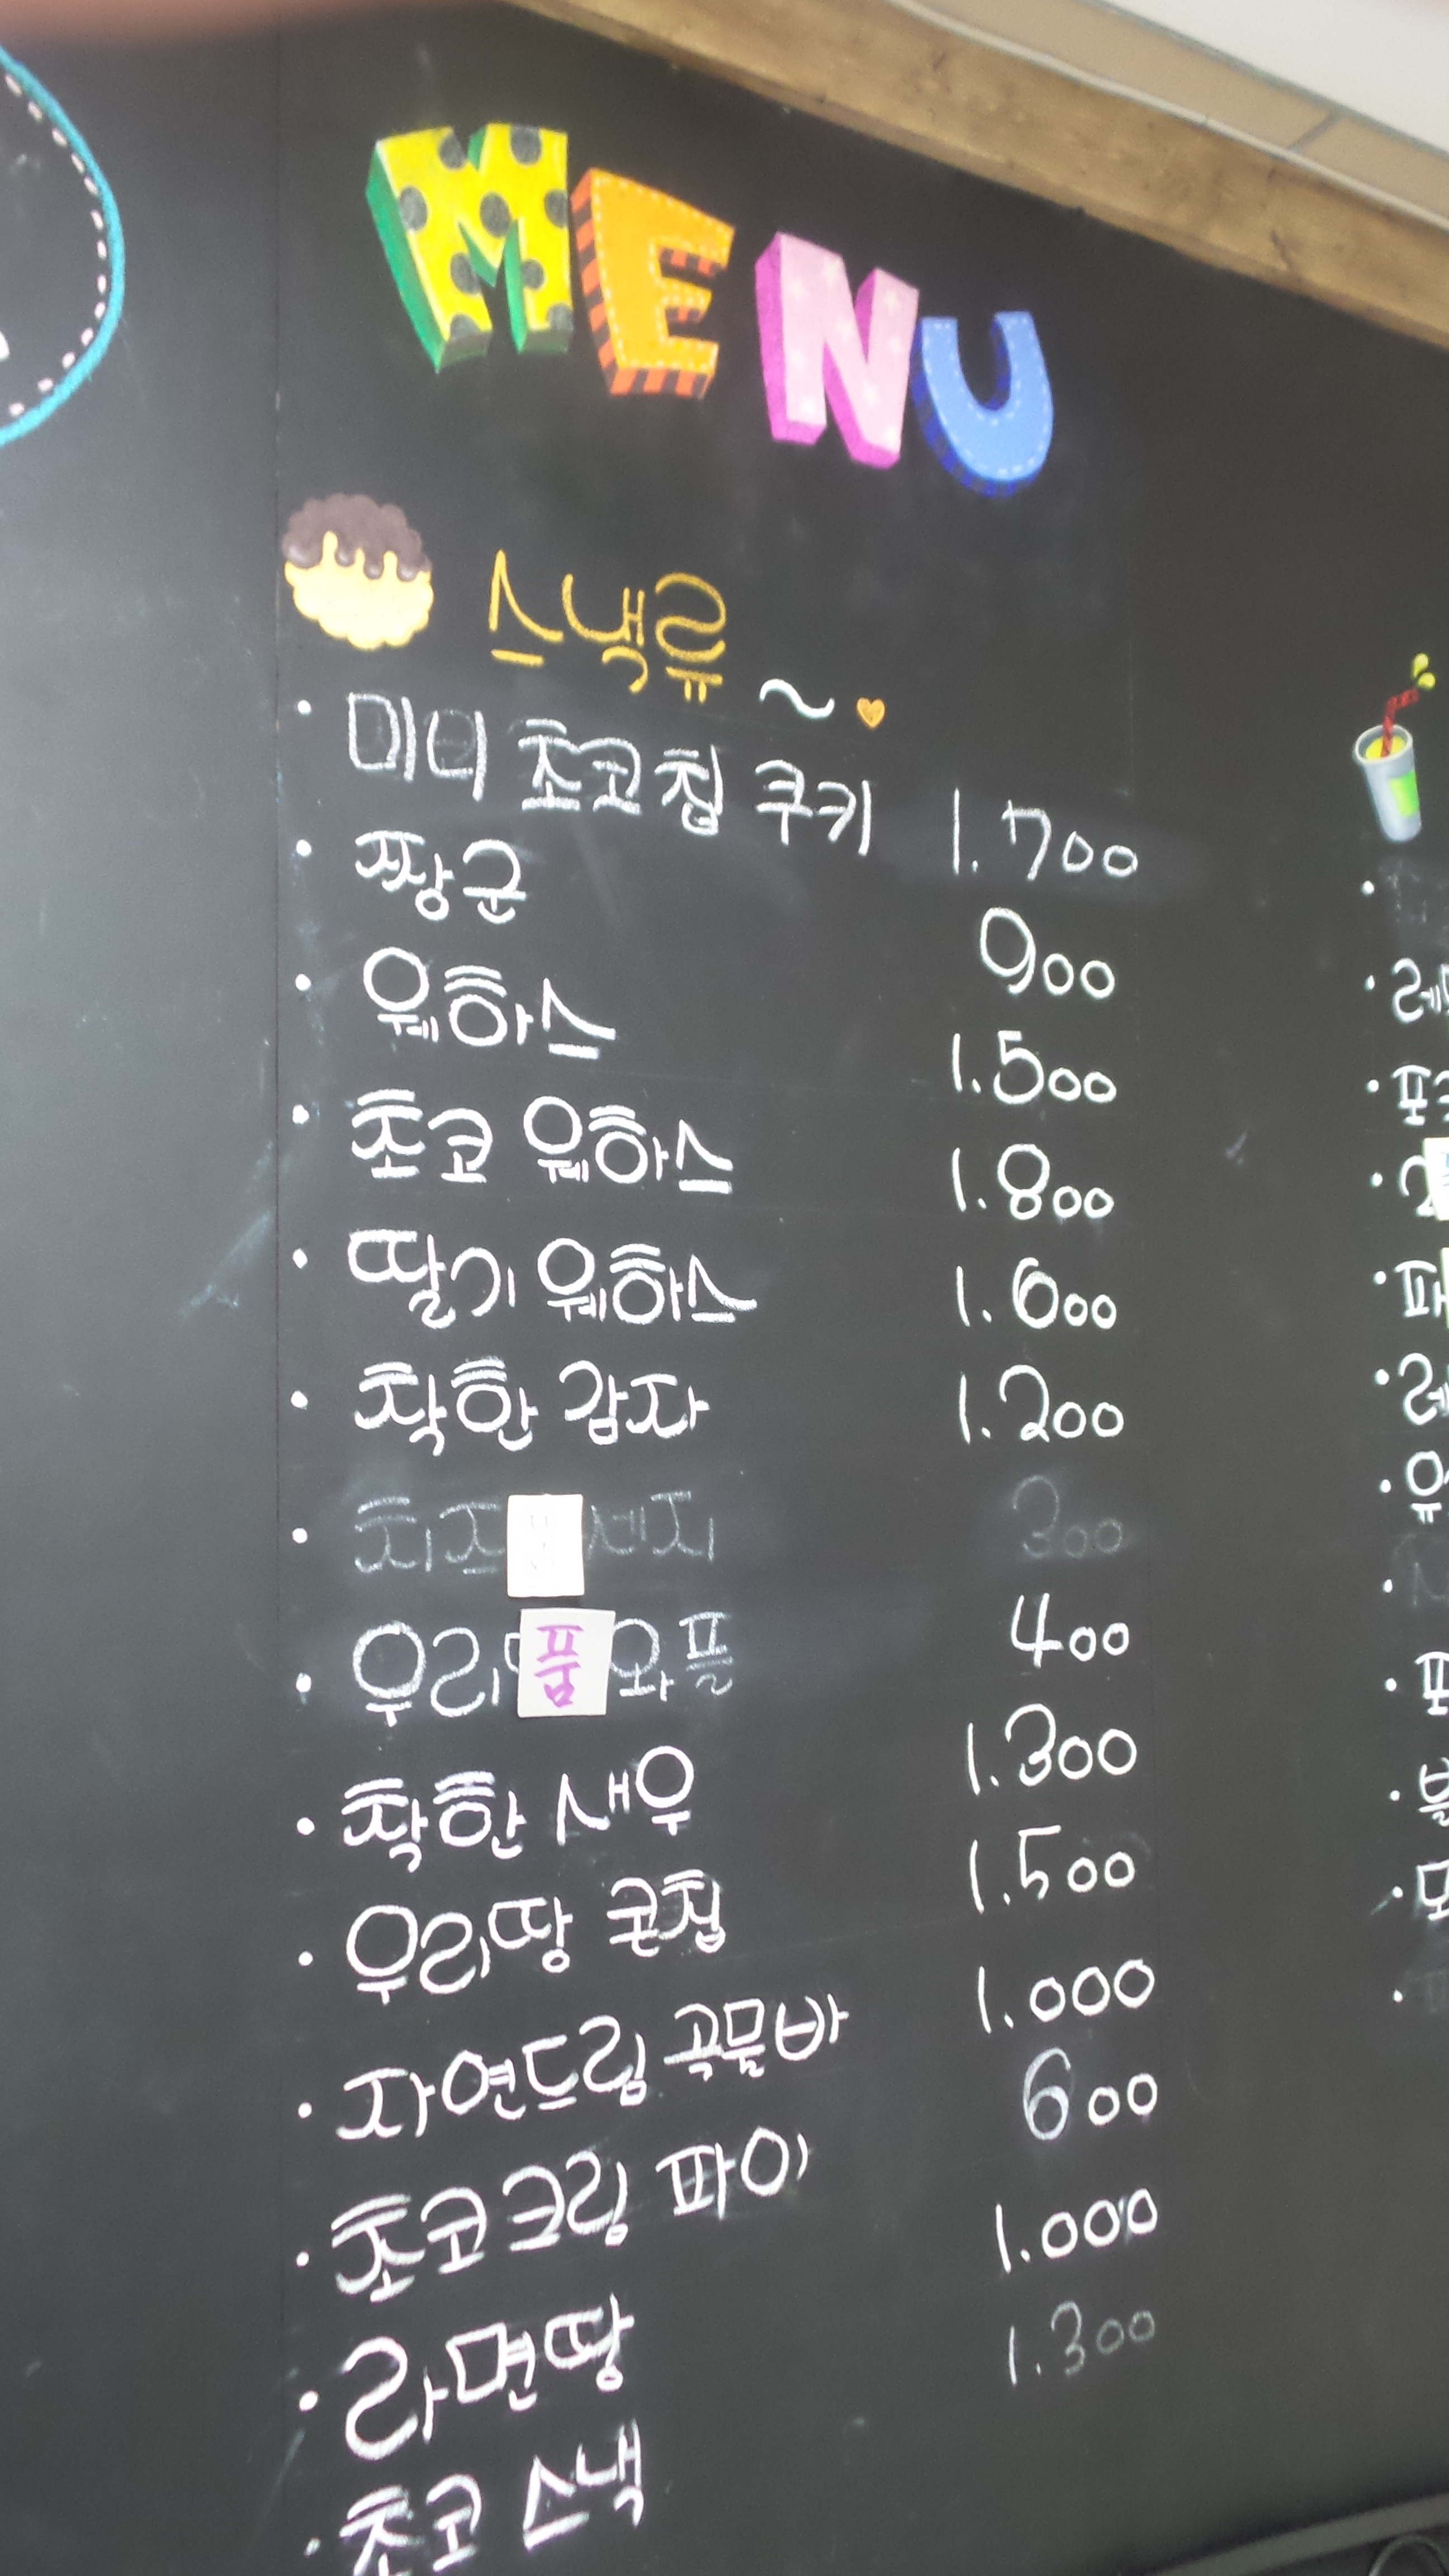 MENU
스낵류~♥
· 미니 초코칩 쿠키 1.700
· 짱군 900
· 웨하스 1.500
· 초코 웨하스 1.800
· 딸기 웨하스 1.600
· 착한 감자 1.200
· 치즈 세지 300
· 우리 품 와플 400
· 착한 새우 1.300
· 우리땅 콘칩 1.500
· 자연드림 곡물바 1.000
· 초코크림 파이 600
· 라면땅 1.000
· 초코 스낵 1.300